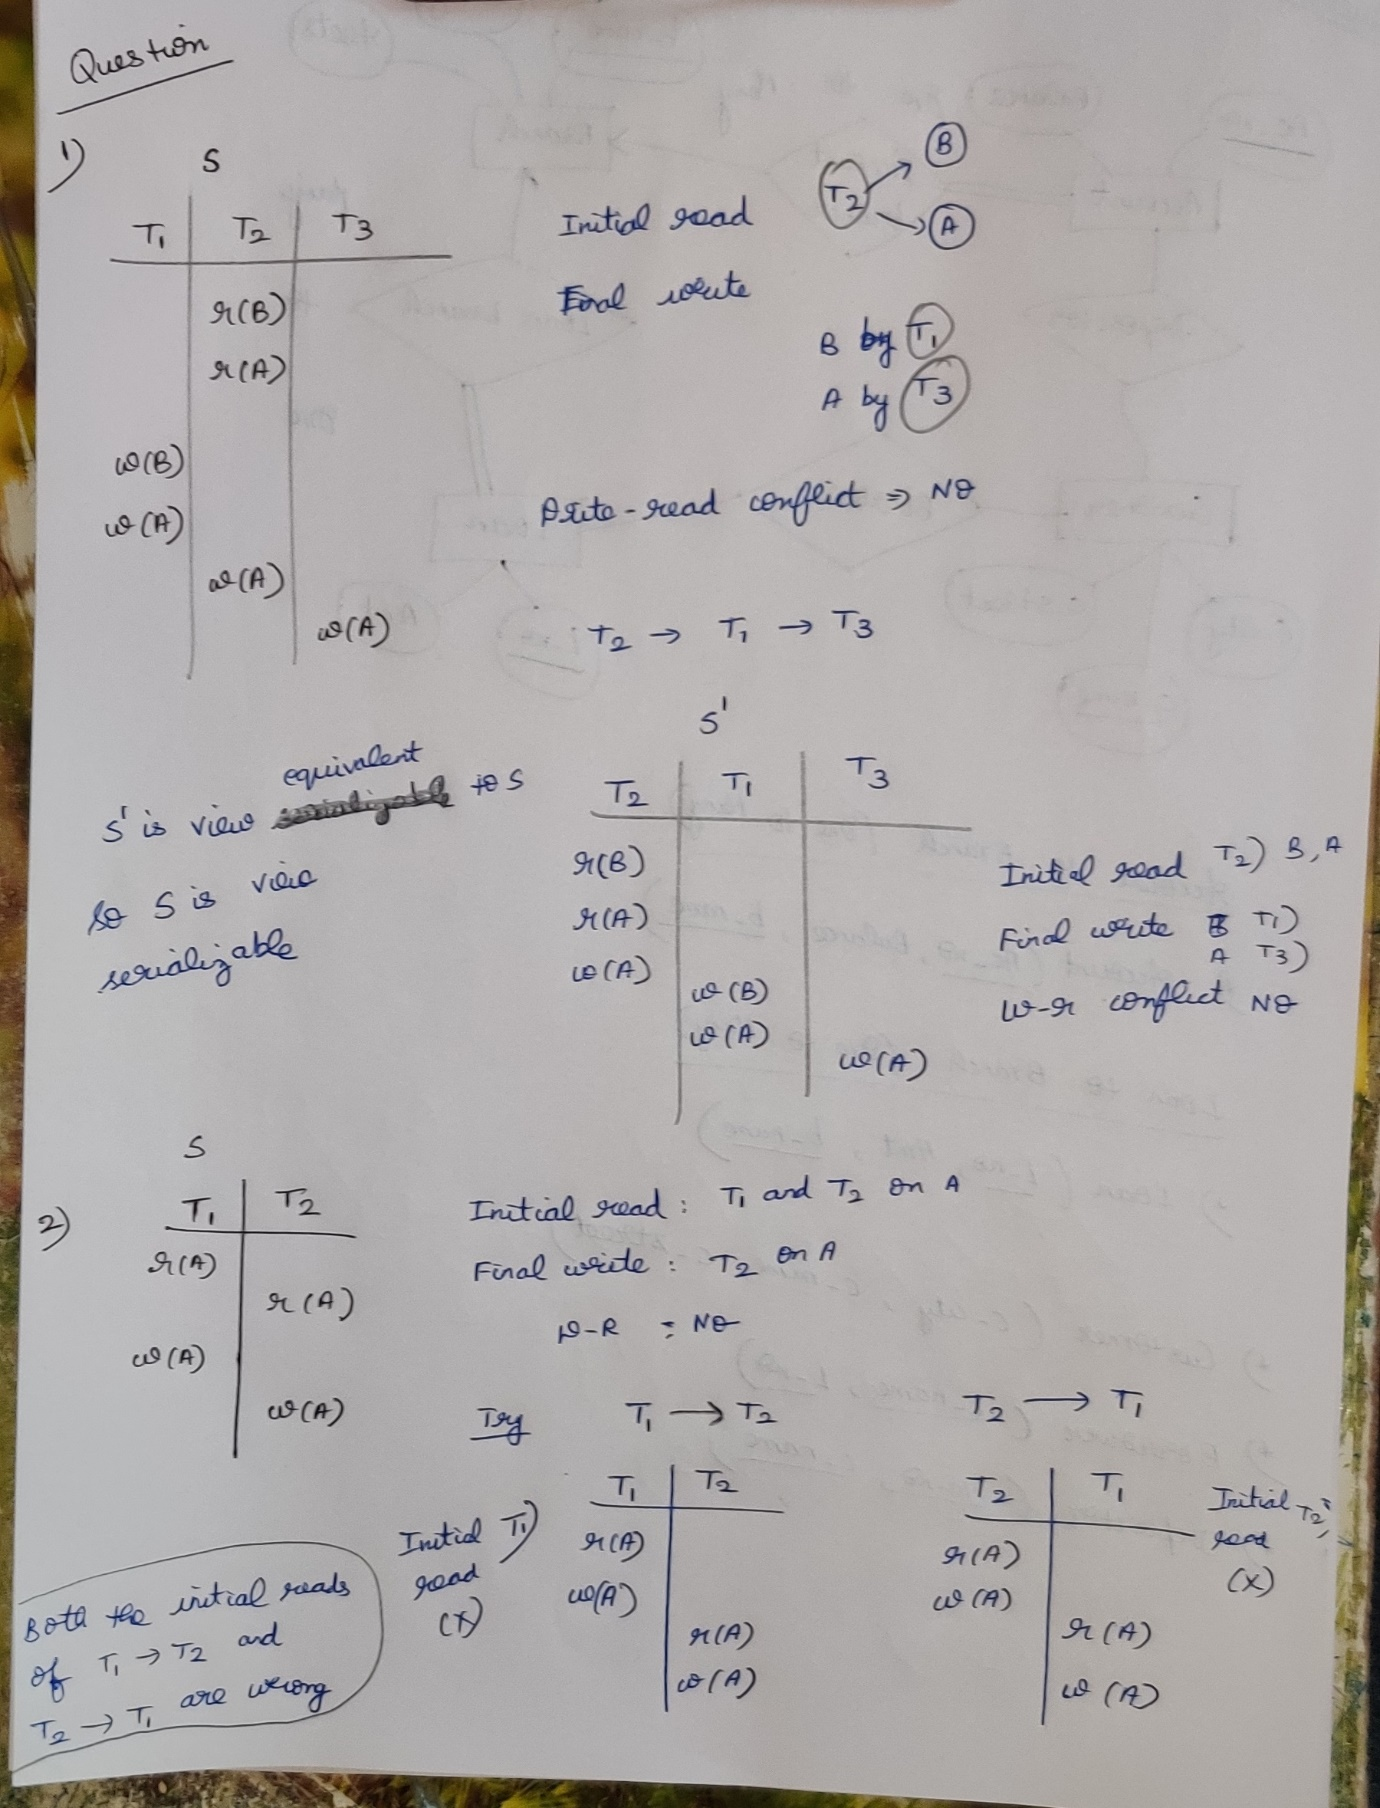 Question
1)
S
T1 T2 T3
r(B)
r(A)
w(B)
w(A)
w(A)
w(A)
Initial read T2 → B
→ A
Final write
B by T1
A by T3
Write-read conflict ⇒ NO
T2 → T1 → T3
S' is view equivalent to S
so S is view
serializable
S'
T2 T1 T3
r(B)
r(A)
w(A)
w(B)
w(A)
w(A)
Initial read T2) B, A
Final write B T1)
A T3)
W-r conflict NO
2)
S
T1 T2
r(A)
r(A)
w(A)
w(A)
Initial read : T1 and T2 on A
Final write : T2 on A
W-R : NO
Try T1 → T2 T2 → T1
Initial T1)
read
(X)
T1 T2
r(A)
w(A)
r(A)
w(A)
T2 T1
r(A)
w(A)
r(A)
w(A)
Initial T2)
read
(X)
Both the initial reads
of T1 → T2 and
T2 → T1 are wrong